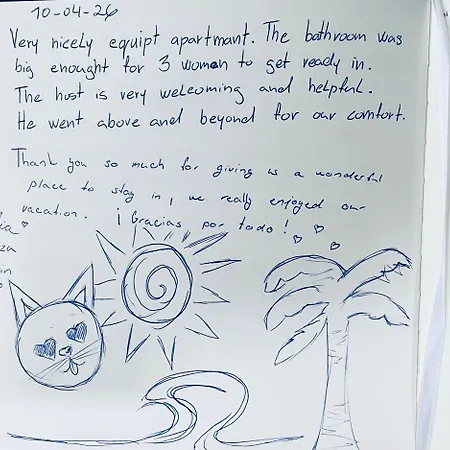 10-04-26
Very nicely equipt apartmant. The bathroom was
big enought for 3 woman to get ready in.
The host is very welcoming and helpful.
He went above and beyond for our comfort.
Thank you so much for giving us a wonderful
place to stay in, we really enjoyed our
vacation. ¡Gracias por todo!